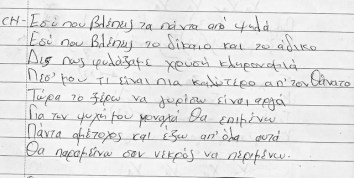 CH- Εσύ που βλέπεις τα πάντα από ψηλά
Εσύ που βλέπεις το δίκαιο και το άδικο
Δες πως φυλάξαμε χρυσή κληρονομιά
Πες' μου τι είναι πια καλύτερο απ' τον θάνατο
Τώρα το ξέρω να γυρίσω είναι αργά
Για την ψυχή μου μοναχά θα επιμένω
Πάντα αμέτοχος και έξω απ' όλα αυτά
Θα παραμείνω σαν νεκρός να περιμένω.